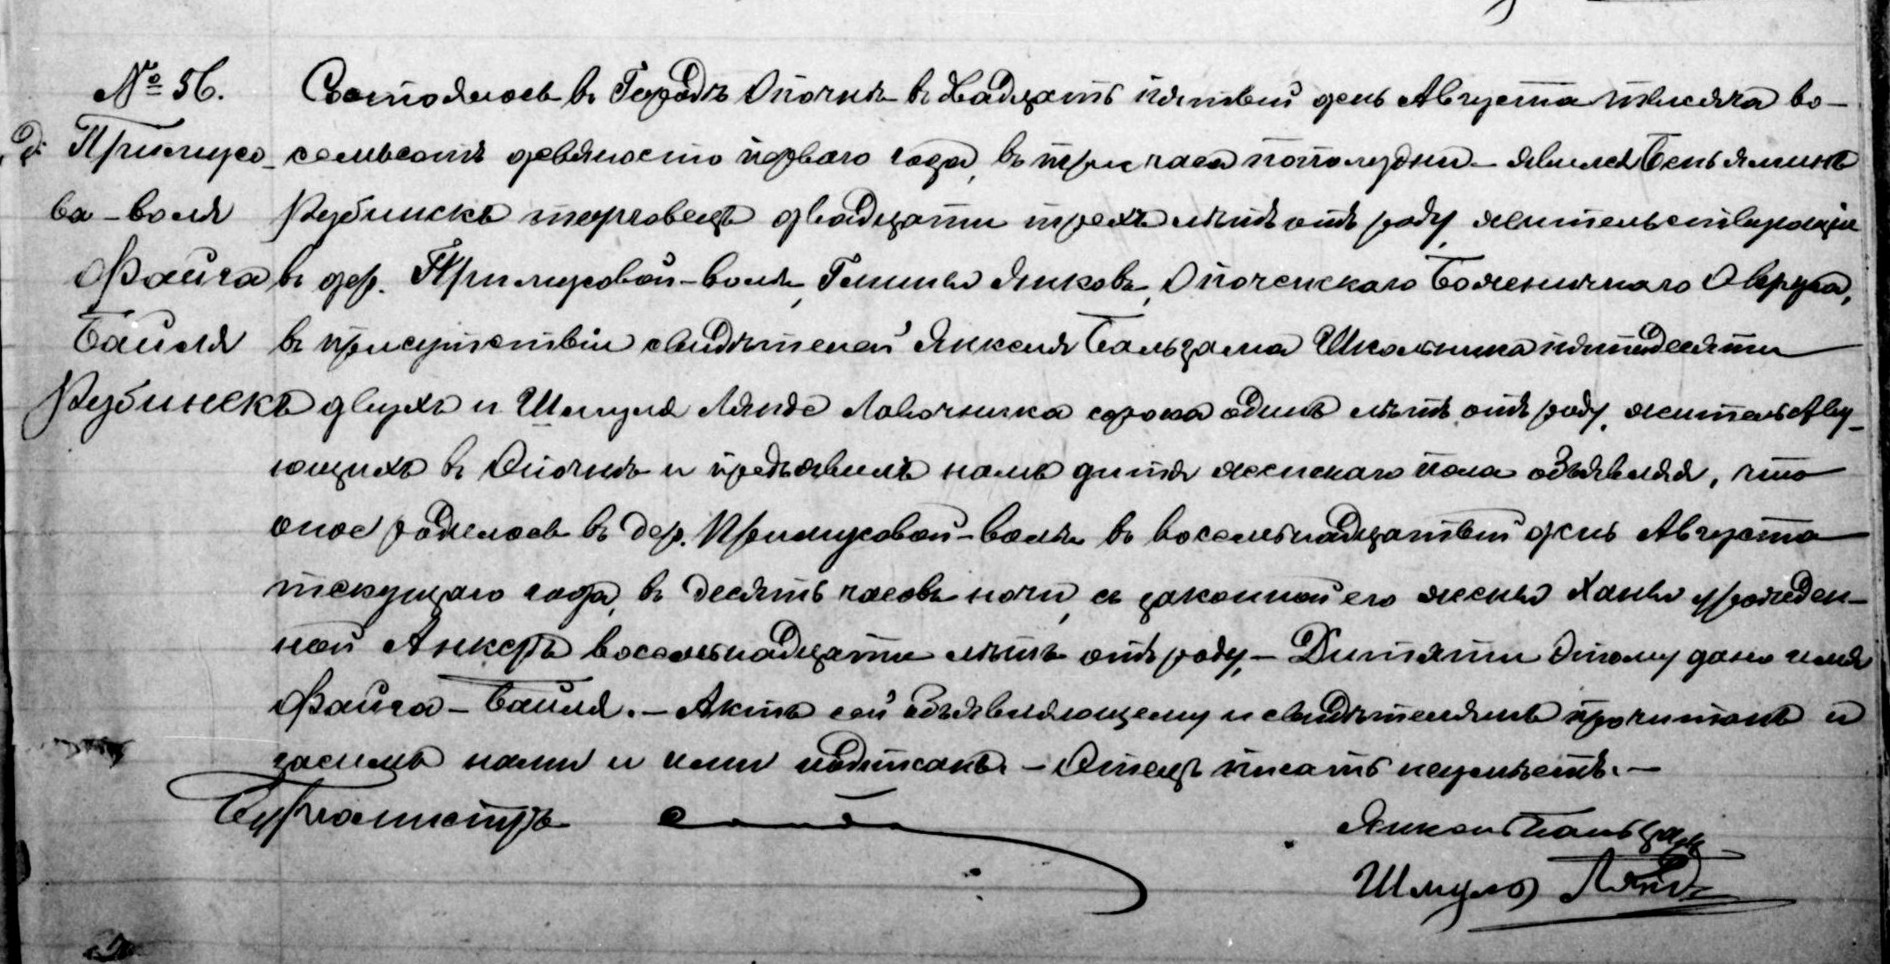 № 56.
д. Примусо-
ва-воля
Файга
Байля
Рубинекъ
Состоялось въ Городѣ Опочнѣ въ двадцать пятый день Августа тысяча во-
семьсотъ девяносто перваго года, въ три часа пополудни – явился Беньяминъ
Рубинекъ торговецъ двадцати трехъ лѣтъ отъ роду, жительствующій
въ дер. Примусовой-волѣ, Гмины Янковъ, Опоченскаго Божничнаго Округа,
въ присутствіи свидѣтелей Янкеля Бальзама Школьника пятидесяти
двухъ и Шмуля Лянде Лавочника сорока одинъ лѣтъ отъ роду, жительству-
ющихъ въ Опочнѣ и предъявилъ намъ дитя женскаго пола объявляя, что
оное родилось въ дер. Примусовой-волѣ въ восемьнадцатый день Августа
текущаго года, въ десять часовъ ночи, съ законной его жены Ханы урожден-
ной Анкеръ восемьнадцати лѣтъ отъ роду, – Дитяти этому дано имя
Файга – Байля. – Актъ сей объявляющему и свидѣтелямъ прочитанъ и
засимъ нами и ими подписанъ. – Отецъ писать неумѣетъ. –
Бургомистръ
Янкель Бальзам
Шмуль Лянде